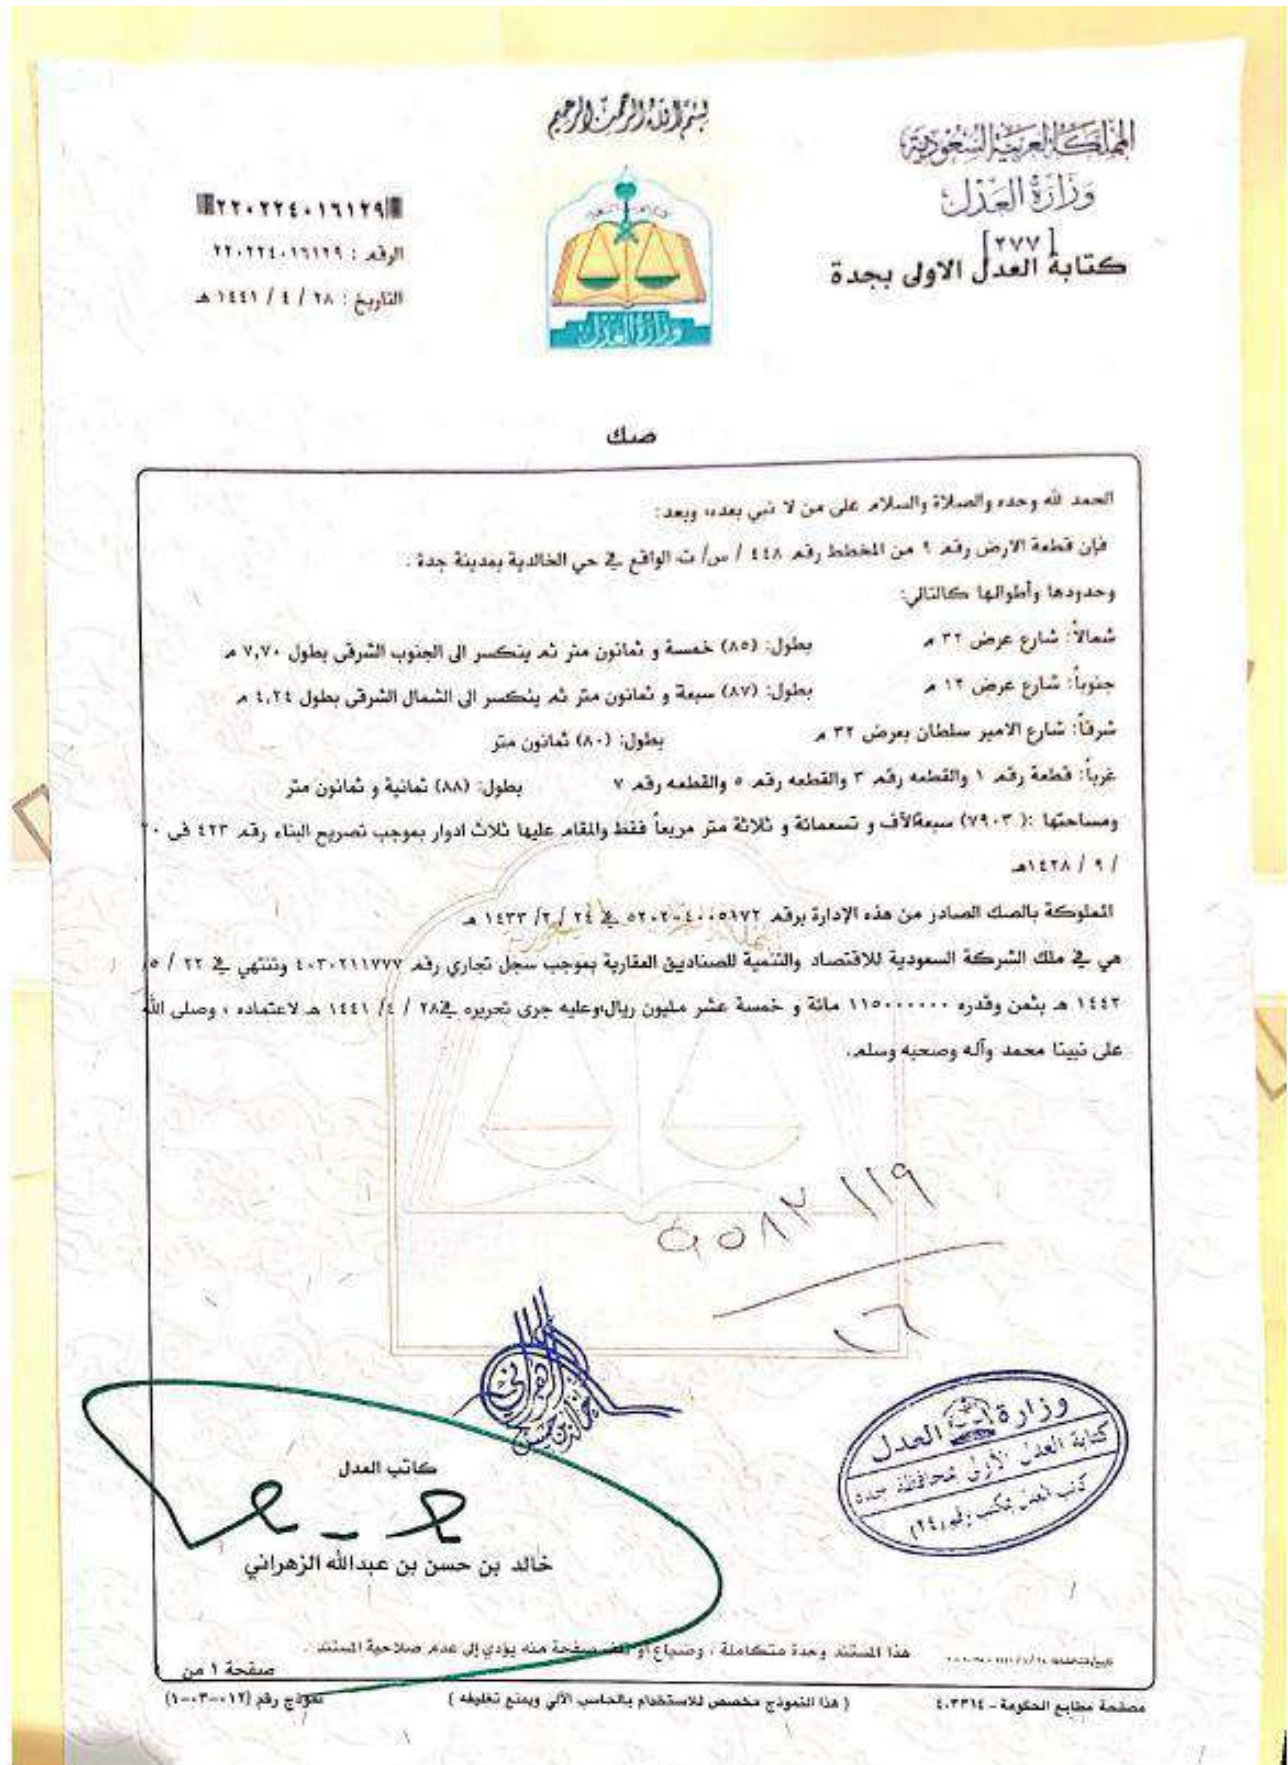 بسم الله الرحمن الرحيم
المملكة العربية السعودية
وزارة العدل
[٢٧٧]
كتابة العدل الاولى بجدة
٢٢٠٢٢٤٠١٦١٢٩
الرقم : ٢٢٠٢٢٤٠١٦١٢٩
التاريخ : ٢٨ / ٤ / ١٤٤١ هـ
وزارة العدل
صك
الحمد لله وحده والصلاة والسلام على من لا نبي بعده، وبعد:
فإن قطعة الارض رقم ٩ من المخطط رقم ٤٤٨ / س/ ت الواقع في حي الخالدية بمدينة جدة .
وحدودها وأطوالها كالتالي:
شمالاً: شارع عرض ٣٢ م بطول: (٨٥) خمسة و ثمانون متر ثم ينكسر الى الجنوب الشرقى بطول ٧,٧٠ م
جنوباً: شارع عرض ١٢ م بطول: (٨٧) سبعة و ثمانون متر ثم ينكسر الى الشمال الشرقى بطول ٤,٢٤ م
شرقاً: شارع الامير سلطان بعرض ٣٢ م بطول: (٨٠) ثمانون متر
غرباً: قطعة رقم ١ والقطعه رقم ٣ والقطعه رقم ٥ والقطعه رقم ٧ بطول: (٨٨) ثمانية و ثمانون متر
ومساحتها :( ٧٩٠٣) سبعةآلاف و تسعمائة و ثلاثة متر مربعاً فقط والمقام عليها ثلاث ادوار بموجب تصريح البناء رقم ٤٢٣ فى ٢٠
/ ٩ / ١٤٢٨هـ
المملوكة بالصك الصادر من هذه الإدارة برقم ٥٢٠٢٠٤٠٠٥١٧٢ في ٢٤ / ٢/ ١٤٣٣ هـ
هي في ملك الشركة السعودية للاقتصاد والتنمية للصناديق العقارية بموجب سجل تجاري رقم ٤٠٣٠٢١١٧٧٧ وتنتهي في ٢٢ / ٥/
١٤٤٢ هـ بثمن وقدره ١١٥٠٠٠٠٠٠ مائة و خمسة عشر مليون ريال،وعليه جرى تحريره في٢٨ / ٤/ ١٤٤١ هـ لاعتماده ، وصلى الله
على نبينا محمد وآله وصحبه وسلم.
وزارة العدل
كتابة العدل الأولى بمحافظة جدة
كاتب العدل بمكتب رقم (٢٤)
كاتب العدل
خالد بن حسن بن عبدالله الزهراني
هذا المستند وحدة متكاملة ، وضياع أو تلف صفحة منه يؤدي إلى عدم صلاحية المستند .
صفحة ١ من
مصلحة مطابع الحكومة - ٤٠٣٣١٤
( هذا النموذج مخصص للاستخدام بالحاسب الآلي ويمنع تغليفه )
نموذج رقم (١٢-٠٣-١)